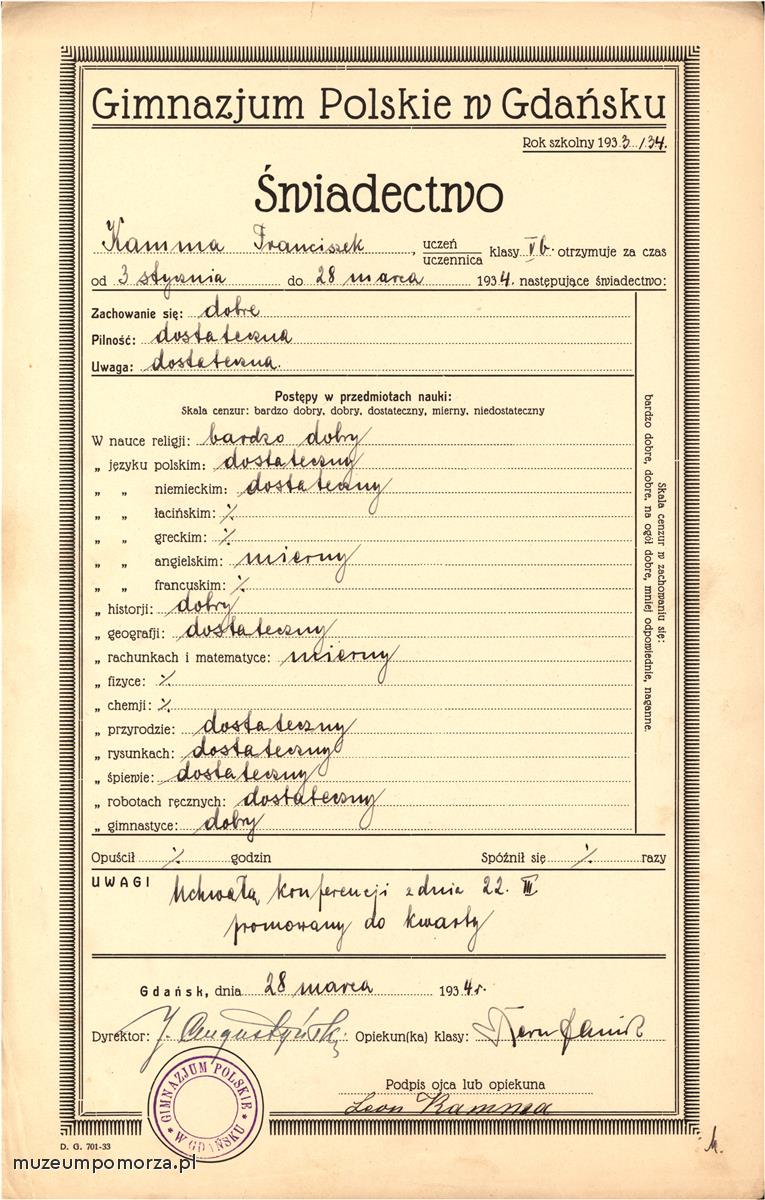 Gimnazjum Polskie w Gdańsku
Rok szkolny 1933/34.
Świadectwo
Kamma Franciszek, uczeń
uczennica klasy Vb. otrzymuje za czas
od 3 stycznia do 28 marca 1934. następujące świadectwo:
Zachowanie się: dobre
Pilność: dostateczna
Uwaga: dostateczna.
Postępy w przedmiotach nauki:
Skala cenzur: bardzo dobry, dobry, dostateczny, mierny, niedostateczny
W nauce religji: bardzo dobry
„ języku polskim: dostateczny
„ „ niemieckim: dostateczny
„ „ łacińskim: ⁒
„ „ greckim: ⁒
„ „ angielskim: mierny
„ „ francuskim: ⁒
„ historji: dobry
„ geografji: dostateczny
„ rachunkach i matematyce: mierny
„ fizyce: ⁒
„ chemji: ⁒
„ przyrodzie: dostateczny
„ rysunkach: dostateczny
„ śpiewie: dostateczny
„ robotach ręcznych: dostateczny
„ gimnastyce: dobry
Skala cenzur w zachowaniu się:
bardzo dobre, dobre, na ogół dobre, mniej odpowiednie, naganne.
Opuścił ⁒ godzin Spóźnił się ⁒ razy
UWAGI Uchwałą konferencji z dnia 22. III
promowany do kwarty
Gdańsk, dnia 28 marca 1934r.
Dyrektor: J. Augustyński Opiekun(ka) klasy:
Podpis ojca lub opiekuna
Leon Kamma
GIMNAZJUM POLSKIE
* W GDAŃSKU *
D. G. 701-33
muzeumpomorza.pl